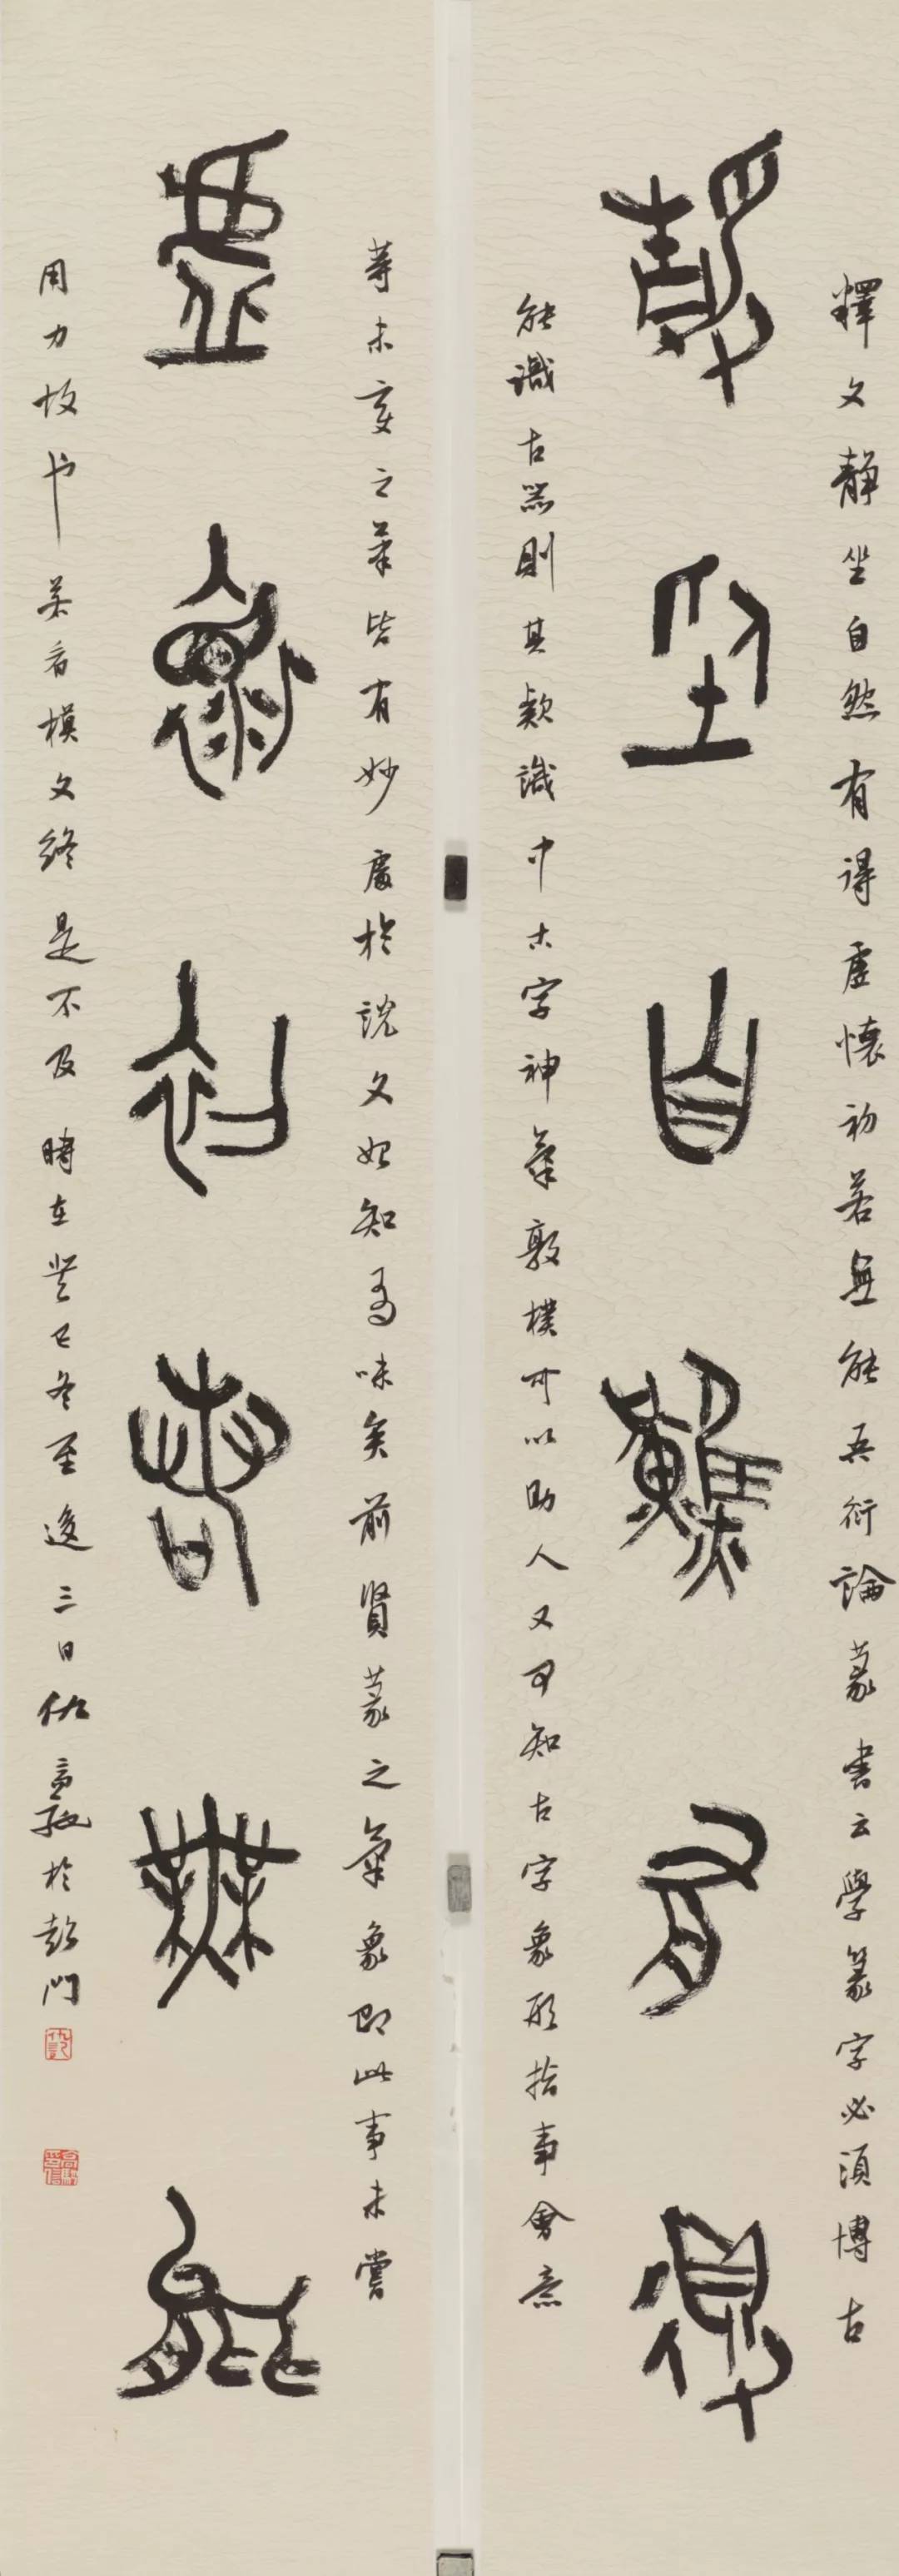 釋文静坐自然有得虛懷初若無能吾衍論篆書云學篆字必須博古
靜坐自然有得
能識古器則其款識中古字神氣敦樸可以助人又可知古字象形指事會意
等未變之筆皆有妙處於說文始知爲味矣前賢篆之氣象即此事未嘗
虛懷初若無能
用力故也若看模文終是不及時在癸巳冬至後三日仇高馳於彭門